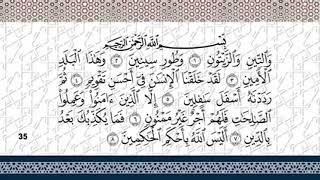 بِسْمِ اللَّهِ الرَّحْمَٰنِ الرَّحِيمِ
وَالتِّينِ وَالزَّيْتُونِ ١ وَطُورِ سِينِينَ ٢ وَهَٰذَا الْبَلَدِ
الْأَمِينِ ٣ لَقَدْ خَلَقْنَا الْإِنسَٰنَ فِي أَحْسَنِ تَقْوِيمٍ ٤ ثُمَّ
رَدَدْنَٰهُ أَسْفَلَ سَٰفِلِينَ ٥ إِلَّا الَّذِينَ ءَامَنُوا وَعَمِلُوا
الصَّٰلِحَٰتِ فَلَهُمْ أَجْرٌ غَيْرُ مَمْنُونٍ ٦ فَمَا يُكَذِّبُكَ بَعْدُ
بِالدِّينِ ٧ أَلَيْسَ اللَّهُ بِأَحْكَمِ الْحَٰكِمِينَ ٨
35